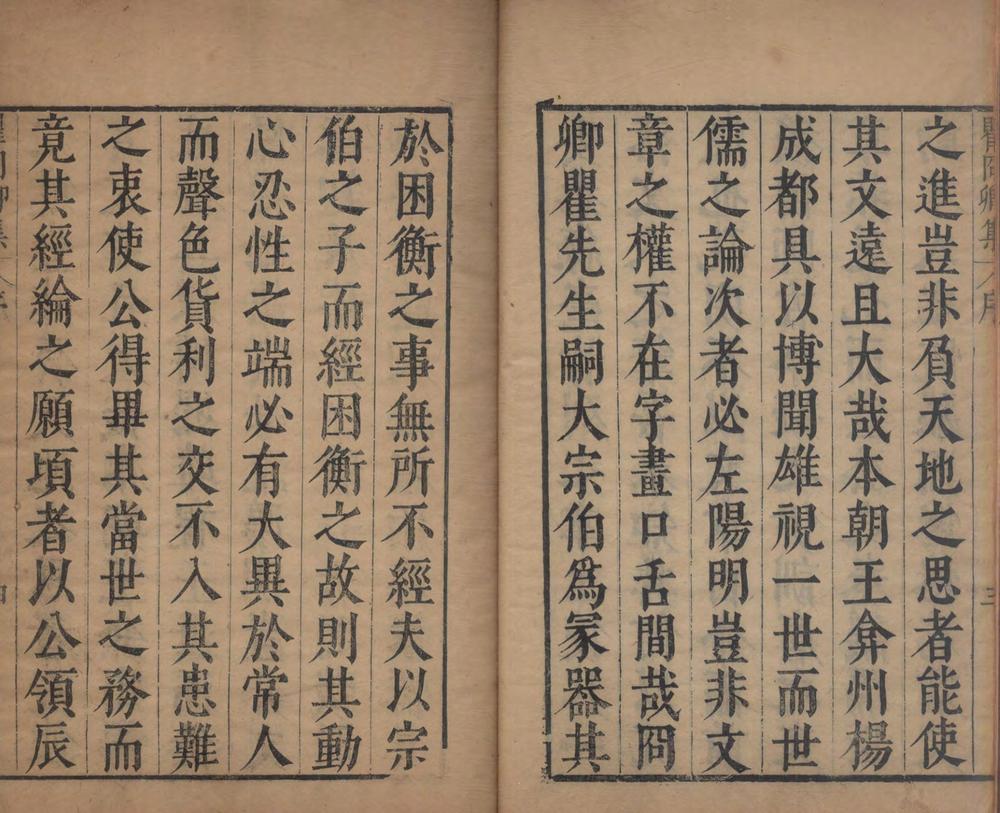 瞿冏卿集 序 三
之進豈非負天地之思者能使
其文遠且大哉本朝王弇州楊
成都具以博聞雄視一世而世
儒之論次者必左陽明豈非文
章之權不在字畫口舌間哉冏
卿瞿先生嗣大宗伯爲冢器其
於困衡之事無所不經夫以宗
伯之子而經困衡之故則其動
心忍性之端必有大異於常人
而聲色貨利之交不入其患難
之衷使公得畢其當世之務而
竟其經綸之願頃者以公領辰
瞿冏卿集 序 四